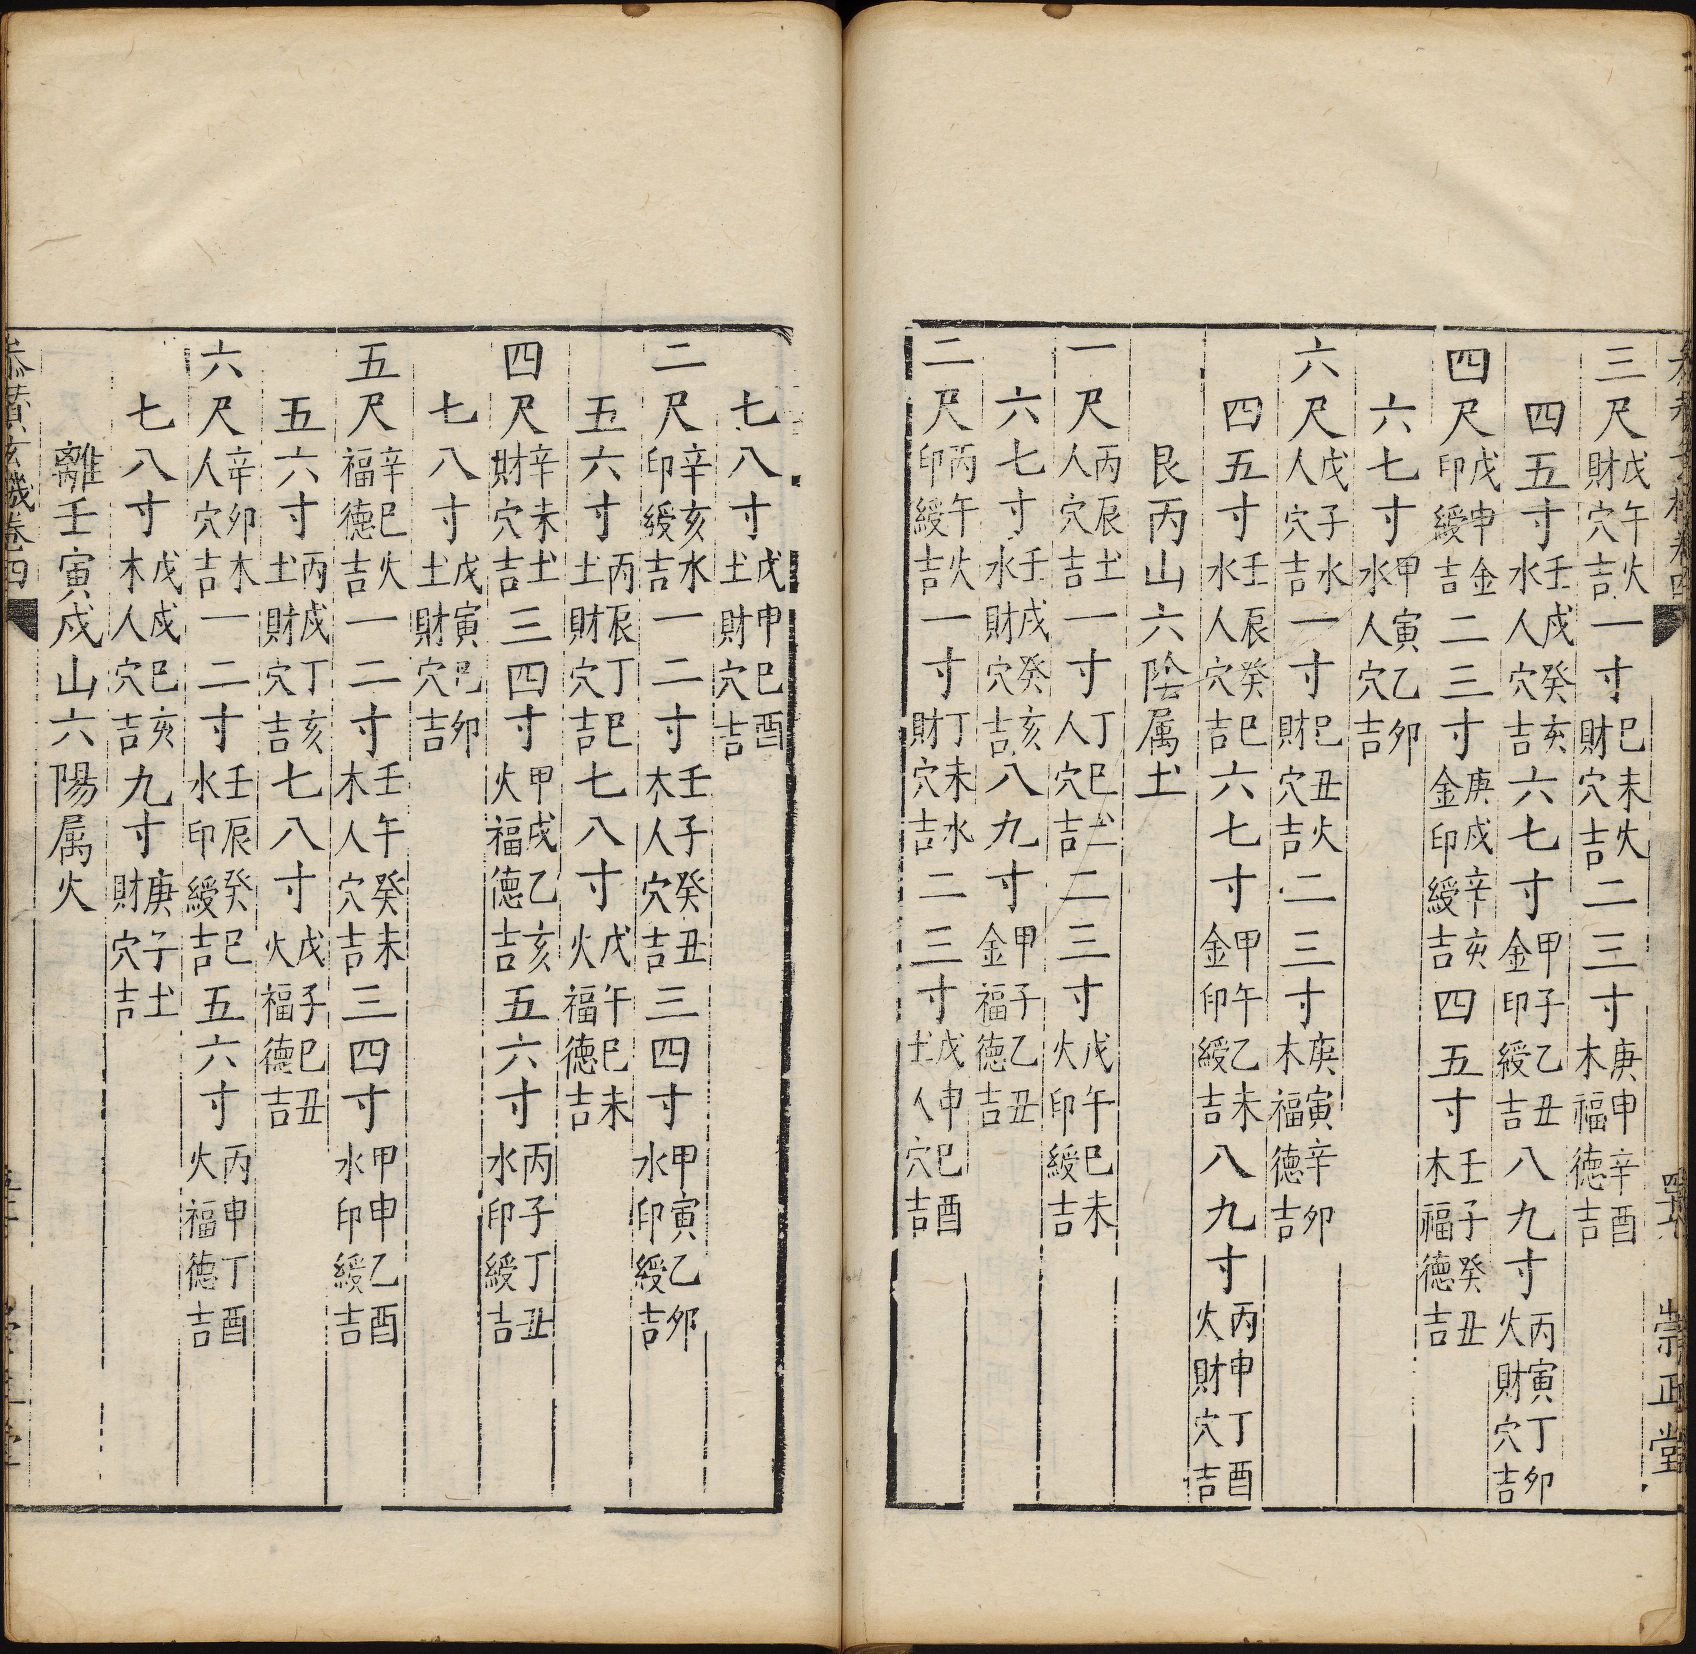 三尺戊午火財穴吉一寸己未火財穴吉二三寸庚申辛酉木福德吉
四五寸壬戌癸亥水人穴吉六七寸甲子乙丑金印綬吉八九寸丙寅丁卯火財穴吉
四尺戊申金印綬吉二三寸庚戌辛亥金印綬吉四五寸壬子癸丑木福德吉
六七寸甲寅乙卯水人穴吉
六尺戊子水人穴吉一寸己丑火財穴吉二三寸庚寅辛卯木福德吉
四五寸壬辰癸巳水人穴吉六七寸甲午乙未金印綬吉八九寸丙申丁酉火財穴吉
艮丙山六陰属土
一尺丙辰土人穴吉一寸丁巳土人穴吉二三寸戊午己未火印綬吉
六七寸壬戌癸亥水財穴吉八九寸甲子乙丑金福德吉
二尺丙午火印綬吉一寸丁未水財穴吉二三寸戊申己酉土人穴吉
七八寸戊申己酉土財穴吉
二尺辛亥水印綬吉一二寸壬子癸丑木人穴吉三四寸甲寅乙卯水印綬吉
五六寸丙辰丁巳土財穴吉七八寸戊午己未火福德吉
四尺辛未土財穴吉三四寸甲戌乙亥火福德吉五六寸丙子丁丑水印綬吉
七八寸戊寅己卯土財穴吉
五尺辛巳火福德吉一二寸壬午癸未木人穴吉三四寸甲申乙酉水印綬吉
五六寸丙戌丁亥土財穴吉七八寸戊子己丑火福德吉
六尺辛卯木人穴吉一二寸壬辰癸巳水印綬吉五六寸丙申丁酉火福德吉
七八寸戊戌己亥木人穴吉九寸庚子土財穴吉
離壬寅戌山六陽属火
卷四
崇正堂